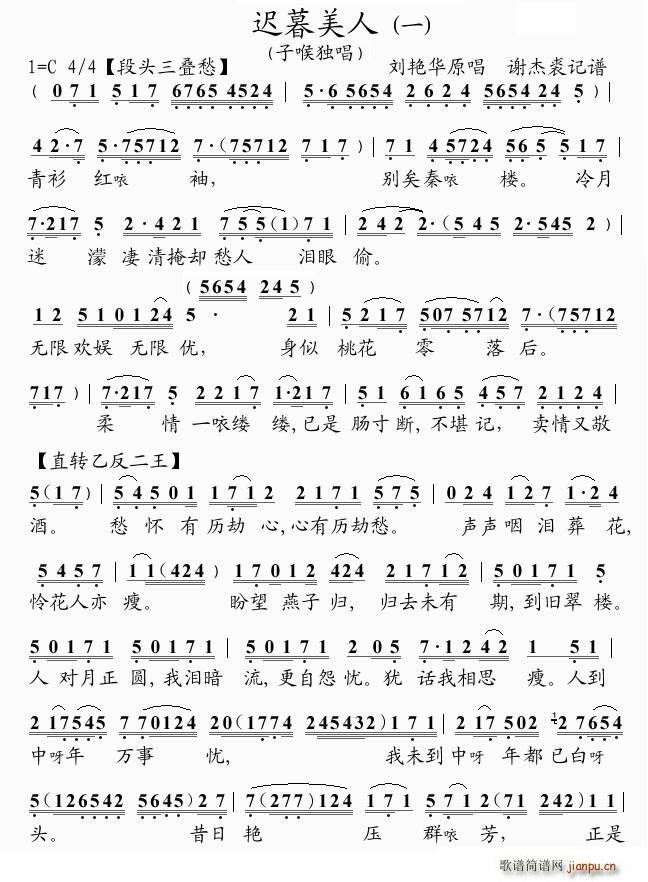 迟暮美人 (一)
(子喉独唱)
1=C 4/4【段头三叠愁】 刘艳华原唱 谢杰裘记谱
( 0 7 1 5 1 7 6765 4524 | 5·6 5654 2 6 2 4 5654 24 5 ) |
4 2·7 5·75712 7·(75712 7 1 7 ) | 7 1 45724 565 5 1 7 |
青衫 红咴 袖, 别矣秦咴 楼。 冷月
7·217 5 2·4 2 1 7 5 5(1)7 1 | 2 4 2 2·(5 4 5 2·545 2 ) |
迷 濛 凄 清掩却 愁人 泪眼 偷。
( 5654 245 )
1 2 5 1 0 1 24 5 · 2 1 | 5 2 1 7 507 5712 7·(75712
无限欢娱 无限 优, 身似 桃花 零 落 后。
717 ) | 7·217 5 2 2 1 7 1·217 | 5 1 6 1 6 5 4 5 7 2 1 2 4 |
柔 情 一咴缕 缕, 已是 肠寸 断, 不堪 记, 卖情又敬
【直转乙反二王】
5(1 7) | 5 4 5 0 1 1 7 1 2 2 1 7 1 5 7 5 | 0 2 4 1 2 7 1·2 4
酒。 愁 怀 有 历劫 心, 心有 历劫愁。 声声 咽 泪 葬 花,
5 4 5 7 | 1 1 (424) 1 7 0 1 2 424 2 1 7 1 2 | 5 0 1 7 1 5
怜花人亦 瘦。 盼望 燕子 归, 归去未有 期, 到旧翠 楼。
5 0 1 7 1 | 5 0 1 7 1 5 0 1 7 1 2 0 5 | 7·1 2 4 2 1 5 1 |
人 对月正 圆, 我泪暗 流, 更自怨 忧。犹 话我相思 瘦。人到
2 17545 7 70124 20(1774 245432)1 7 1 | 2 1 7 502 127654
中呀年 万事 忧, 我未到 中呀 年都 已白呀
5(126542 5645)2 7 | 7(277)124 1 7 1 5 7 1 2(7 1 242)1 1 |
头。 昔日 艳 压 群咴 芳, 正是
歌谱简谱网 jianpu.cn